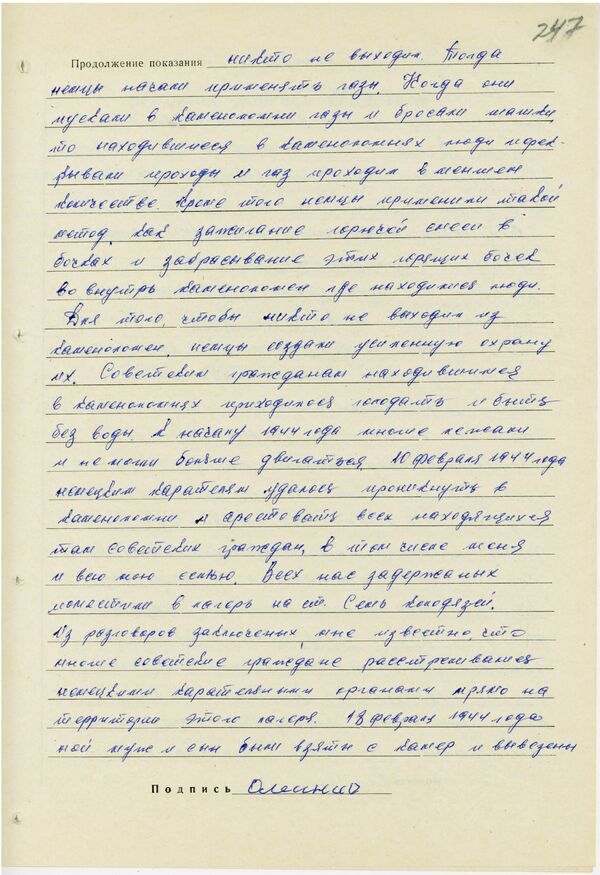 247
Продолжение показания никто не выходил. Тогда
немцы начали применять газы. Когда они
пускали в каменоломни газы и бросали шашки
то находившиеся в каменоломнях люди перек-
рывали проходы и газ проходил в меншем
количестве. Кроме того немцы применили такой
метод, как зажигание горючей смеси в
бочках и забрасывание этих горящих бочек
во внутрь каменоломен где находились люди.
Для того, чтобы никто не выходил из
каменоломен, немцы создали усиленную охрану
их. Советским гражданам находившимся
в каменоломнях приходилося голодать и быть
без воды. К началу 1944 года многие лежали
и не могли больше двигаться. 10 февраля 1944 года
немецким карателям удалось проникнуть в
каменоломни и арестовать всех находящихся
там советских граждан, в том числе меня
и всю мою семью. Всех нас задержаных
поместили в лагерь на ст. Семь Колодязей.
Из разговоров заключеных, мне известно, что
многие советские граждане расстреливались
немецкими карательными органами прямо на
территории этого лагеря. 18 февраля 1944 года
мой муж и сын были взяты с камер и вывезены
Подпись